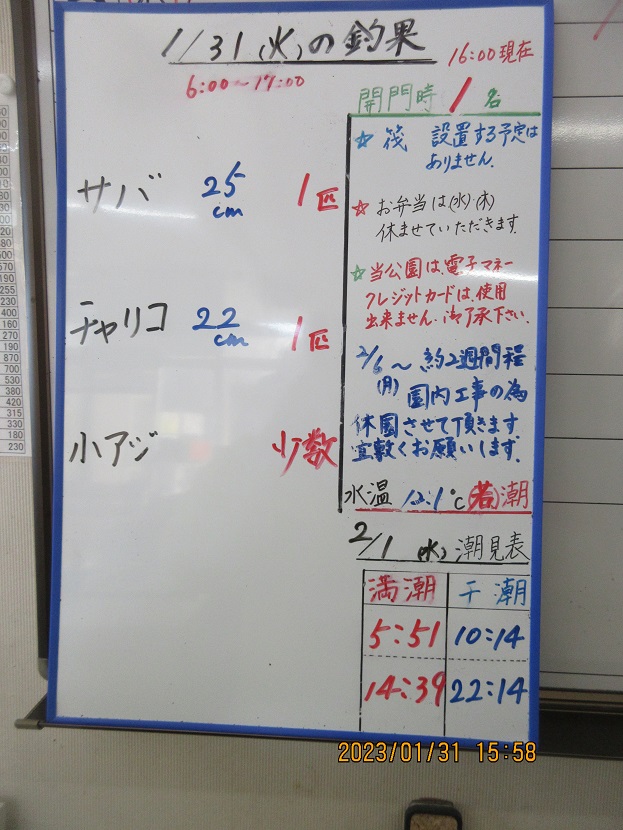 1/31(火)の釣果
16:00現在
6:00~17:00
開門時 1名
サバ 25cm 1匹
チャリコ 22cm 1匹
小アジ 少数
☆ 筏 設置する予定は
ありません。
☆ お弁当は(水)(木)
休ませていただきます。
☆ 当公園は、電子マネー
クレジットカードは、使用
出来ません。御了承下さい。
2/6(月)~ 約2週間程
園内工事の為
休園させて頂きます
宜敷くお願いします。
水温 12.1℃ (若)潮
2/1 (水) 潮見表
満潮 干潮
5:51 10:14
14:39 22:14
2023/01/31 15:58